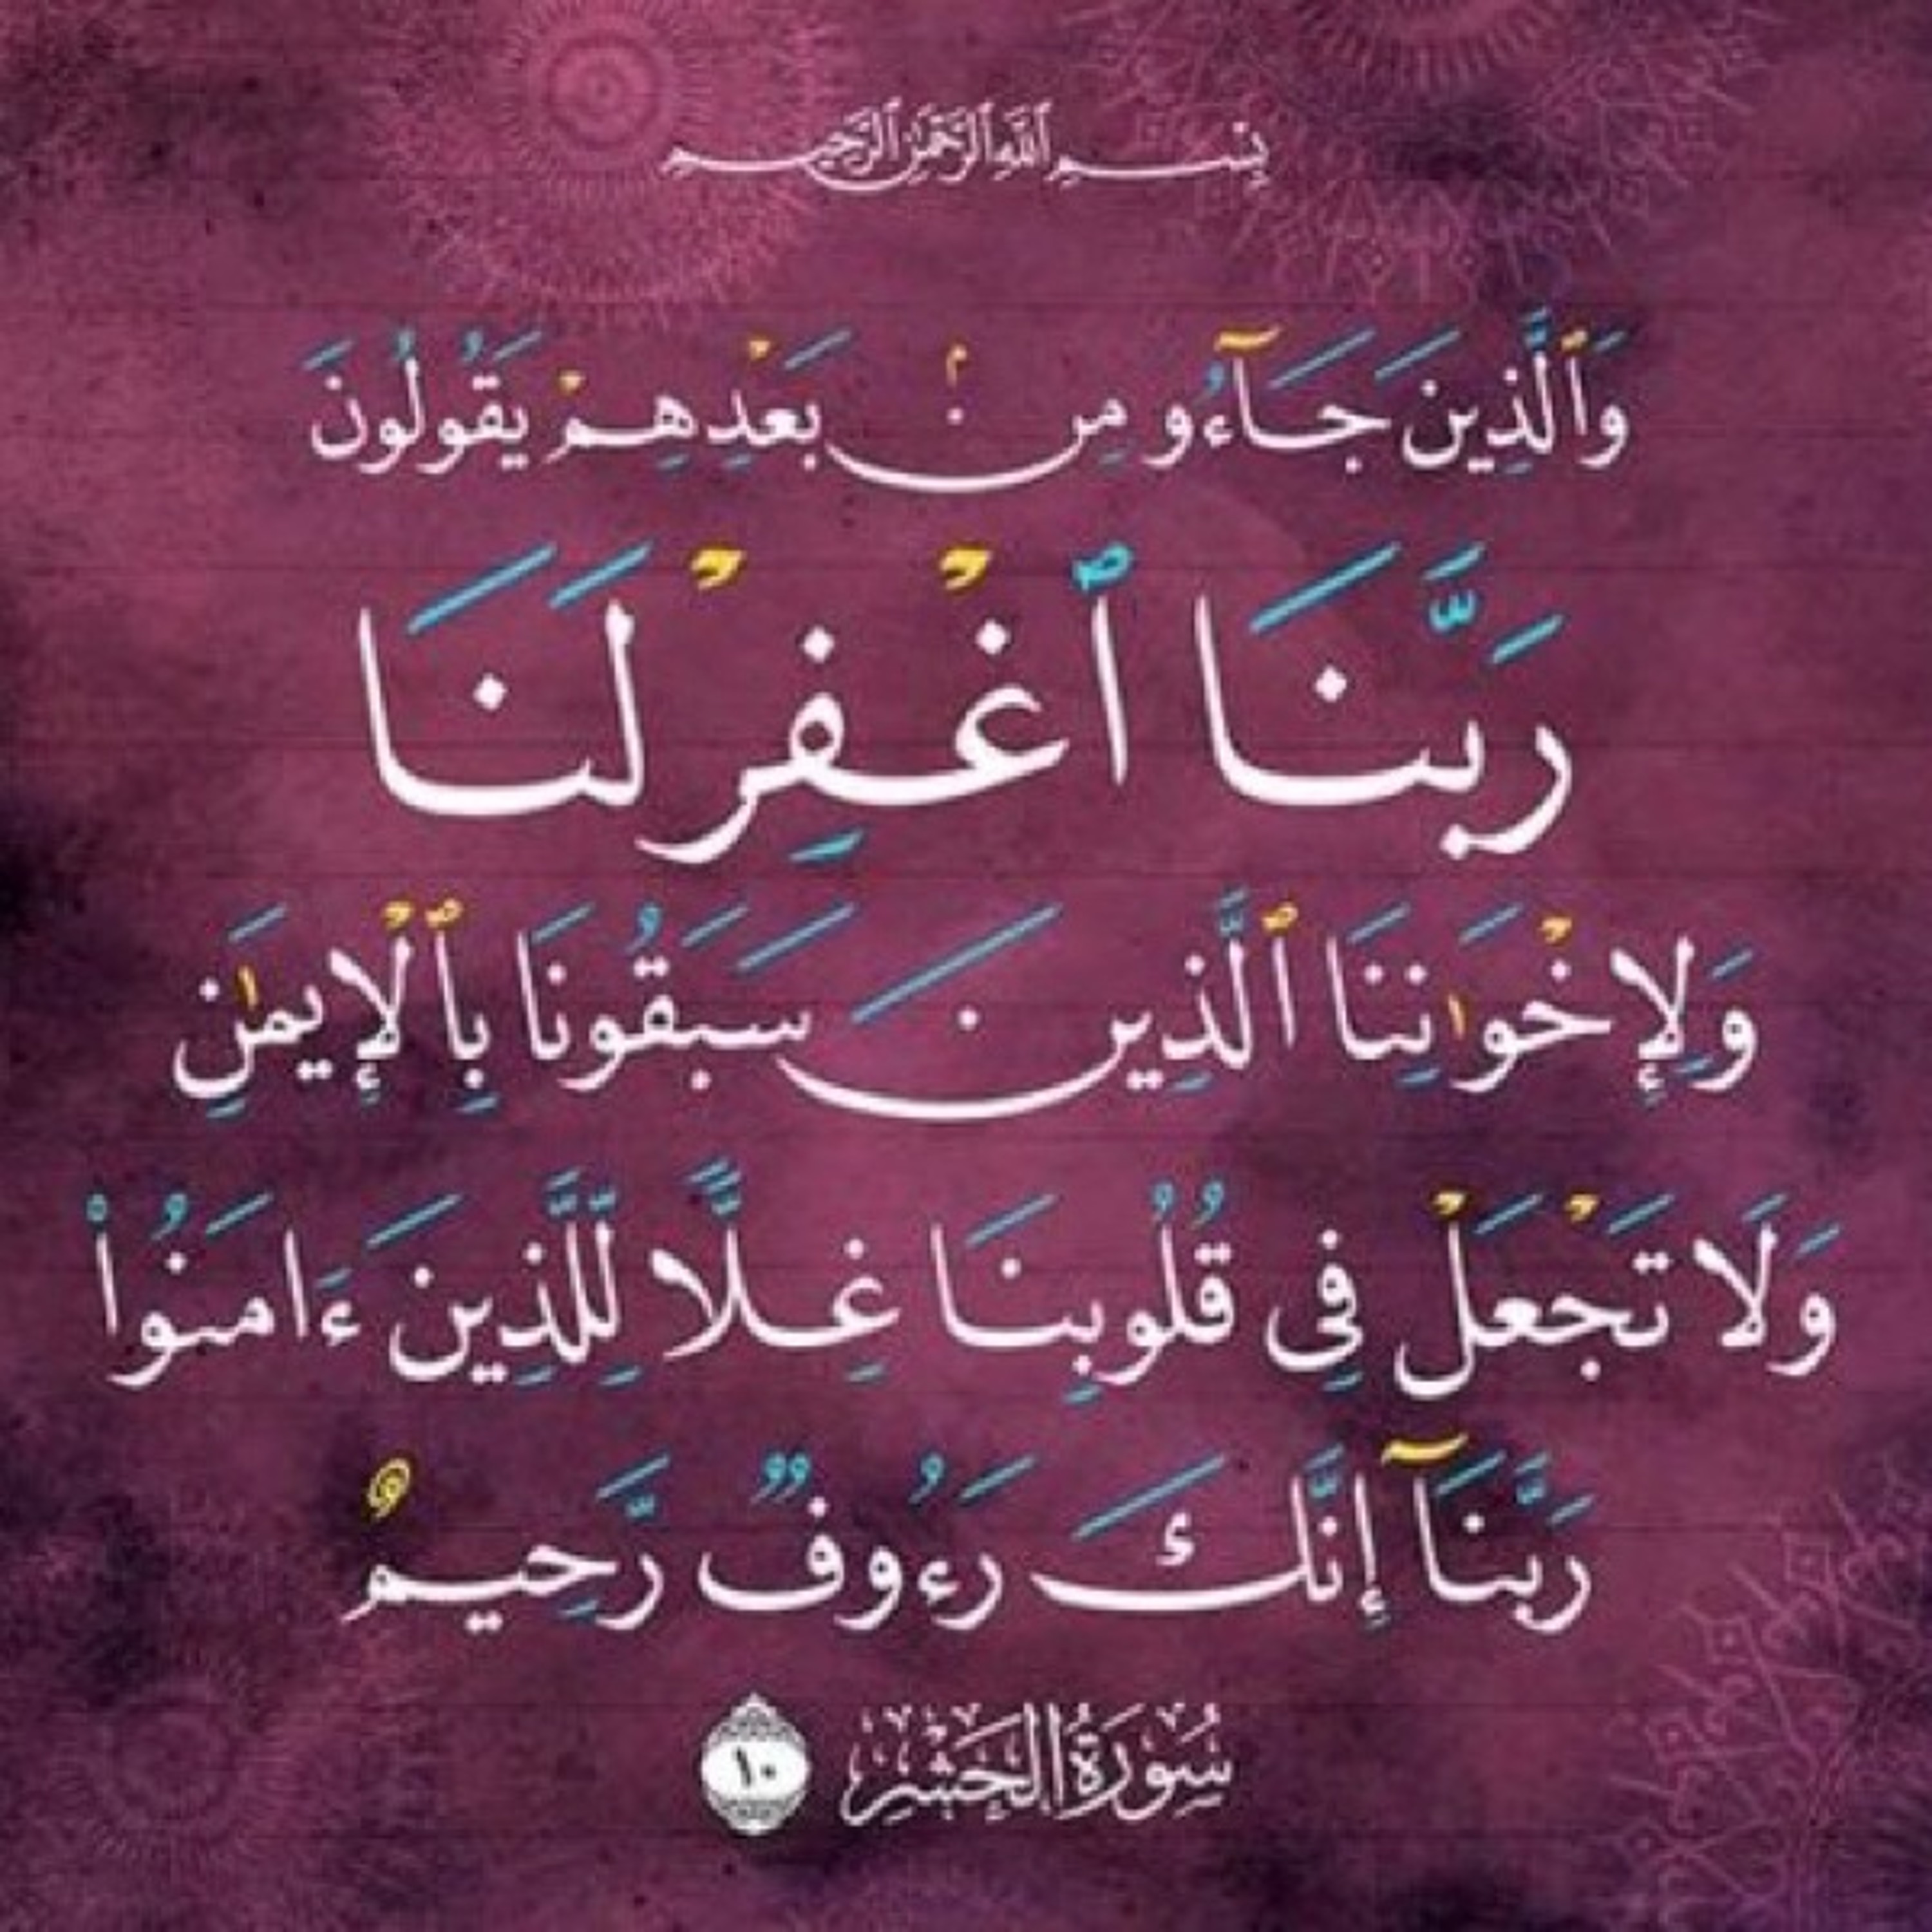 بِسْمِ ٱللَّهِ ٱلرَّحْمَٰنِ ٱلرَّحِيمِ
وَٱلَّذِينَ جَآءُو مِنۢ بَعْدِهِمْ يَقُولُونَ
رَبَّنَا ٱغْفِرْ لَنَا
وَلِإِخْوَٰنِنَا ٱلَّذِينَ سَبَقُونَا بِٱلْإِيمَٰنِ
وَلَا تَجْعَلْ فِى قُلُوبِنَا غِلًّا لِّلَّذِينَ ءَامَنُوا۟
رَبَّنَآ إِنَّكَ رَءُوفٌ رَّحِيمٌ
سُورَةُ الحَشْرِ ١٠